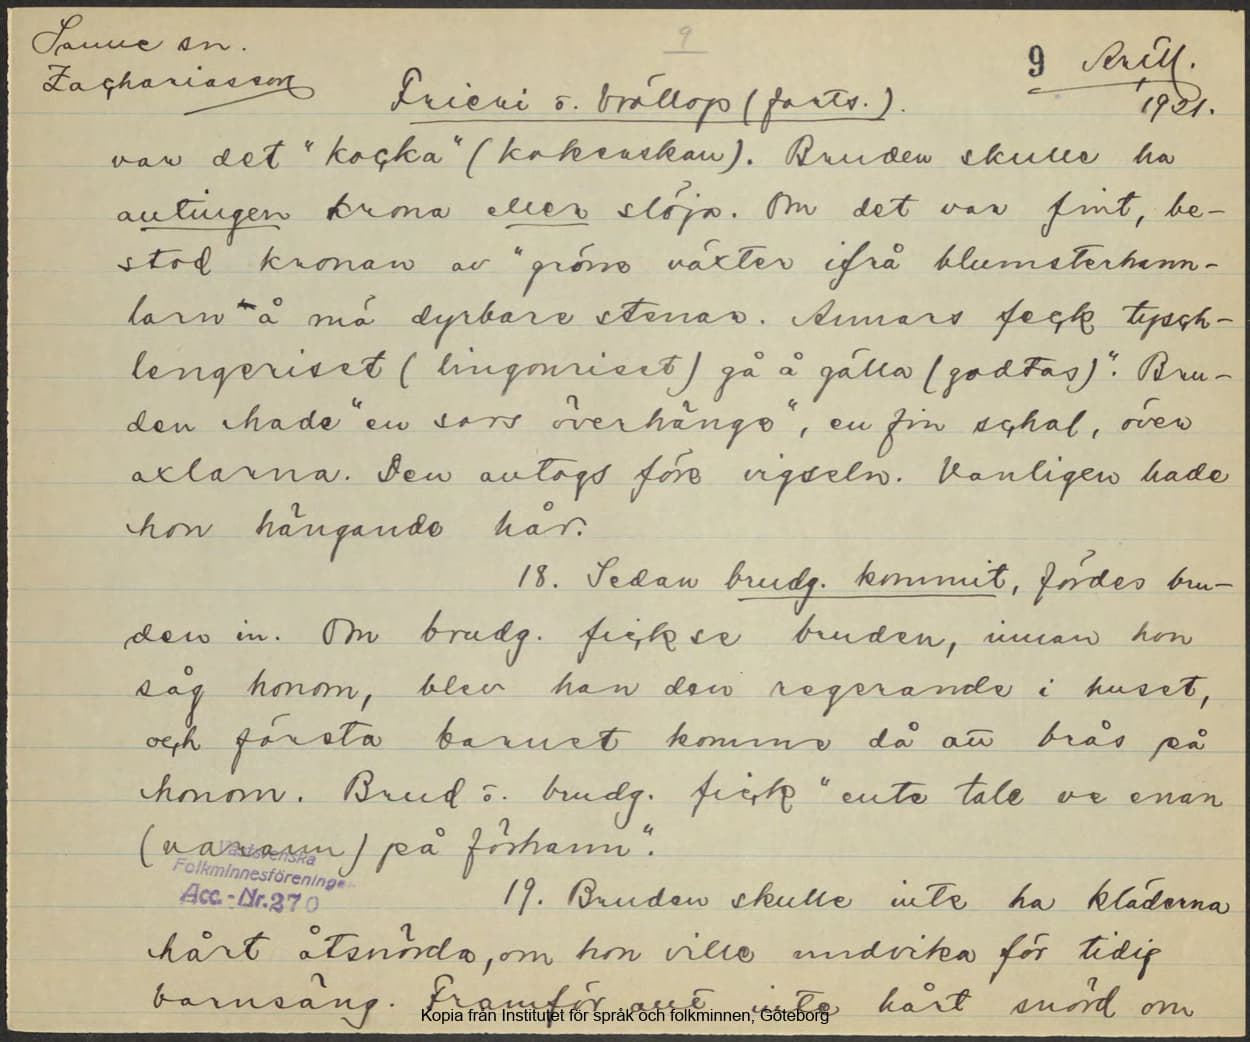 Sanne sn.
9
9 April.
Zachariasson
Frieri o. bröllop (forts.).
1921.
var det "kocka" (kokerskan). Bruden skulle ha
antingen krona eller slöja. Om det var fint, be-
stod kronan av "gröne växter ifrå blumsterhann-
larn" å mä dyrbare stenar. Annars feck tysch-
lengeriset (lingonriset) gå å gälla (godtas)". Bru-
den hade "en sors överhänge", en fin schal, över
axlarna. Den avtogs före vigseln. Vanligen hade
hon hängande hår.
18. Sedan brudg. kommit, fördes bru-
den in. Om brudg. fick se bruden, innan hon
såg honom, blev han den regerande i huset,
och första barnet komme då att brås på
honom. Brud o. brudg. fick "ente tale ve enan
(varann) på förhann".
Västsvenska
Folkminnesföreningen
Acc.-Nr. 270
19. Bruden skulle inte ha kläderna
hårt åtsnörda, om hon ville undvika för tidig
barnsäng. Framför allt inte hårt snörd om
Kopia från Institutet för språk och folkminnen, Göteborg